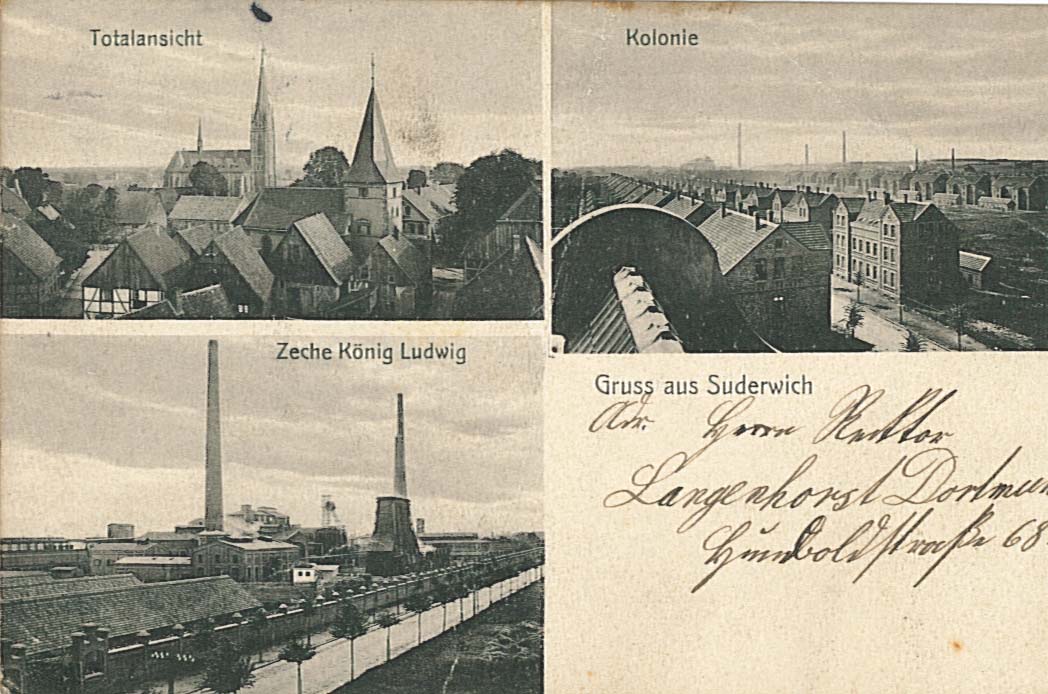 Totalansicht
Kolonie
Zeche König Ludwig
Gruss aus Suderwich
Adr. Herrn Rektor
Langenhorst Dortmun
Humboldstraße 68.